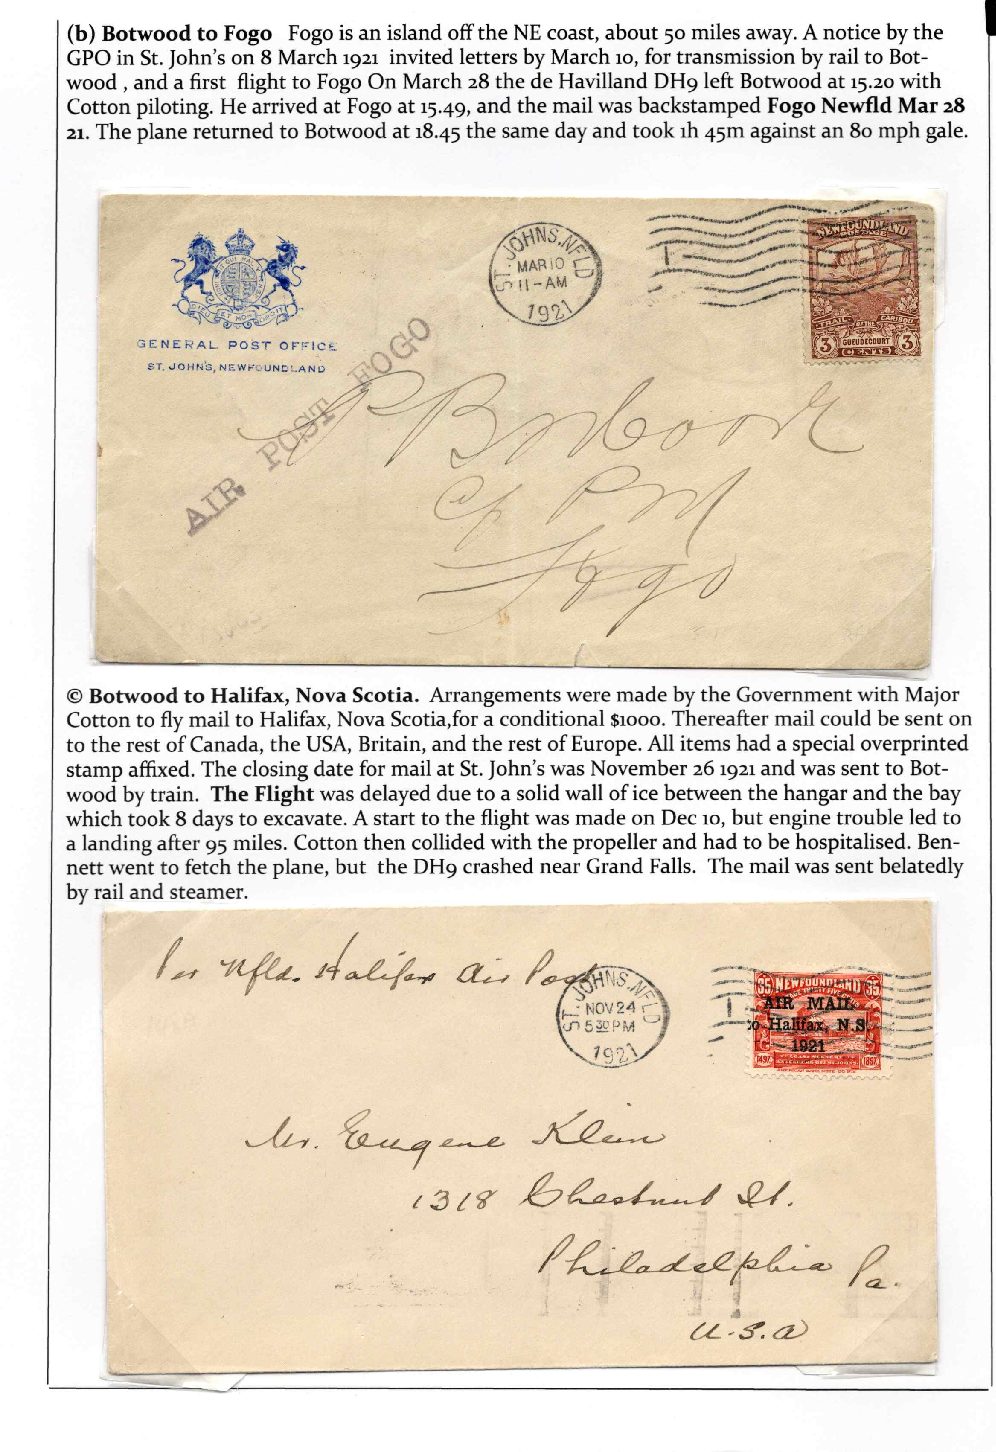 (b) Botwood to Fogo Fogo is an island off the NE coast, about 50 miles away. A notice by the
GPO in St. John's on 8 March 1921 invited letters by March 10, for transmission by rail to Bot-
wood , and a first flight to Fogo On March 28 the de Havilland DH9 left Botwood at 15.20 with
Cotton piloting. He arrived at Fogo at 15.49, and the mail was backstamped Fogo Newfld Mar 28
21. The plane returned to Botwood at 18.45 the same day and took 1h 45m against an 80 mph gale.
GENERAL POST OFFICE
ST. JOHN'S, NEWFOUNDLAND
AIR POST FOGO
ST. JOHNS, NFLD
MAR 10
11-AM
1921
NEWFOUNDLAND
TRAIL OF THE CARIBOU
GUEUDECOURT
3 CENTS 3
Fogo
© Botwood to Halifax, Nova Scotia. Arrangements were made by the Government with Major
Cotton to fly mail to Halifax, Nova Scotia,for a conditional $1000. Thereafter mail could be sent on
to the rest of Canada, the USA, Britain, and the rest of Europe. All items had a special overprinted
stamp affixed. The closing date for mail at St. John's was November 26 1921 and was sent to Bot-
wood by train. The Flight was delayed due to a solid wall of ice between the hangar and the bay
which took 8 days to excavate. A start to the flight was made on Dec 10, but engine trouble led to
a landing after 95 miles. Cotton then collided with the propeller and had to be hospitalised. Ben-
nett went to fetch the plane, but the DH9 crashed near Grand Falls. The mail was sent belatedly
by rail and steamer.
Per Nfld. Halifax Air Post
ST. JOHNS, NFLD
NOV 24
5 30 PM
1921
35 NEWFOUNDLAND 35
AIR MAIL
to Halifax, N.S.
1921
1497 1897
Mr. Eugene Klein
1318 Chestnut St.
Philadelphia Pa.
U.S.A